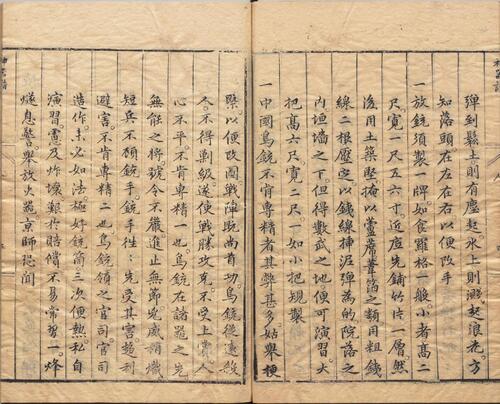 彈到鬆土則有塵起水上則濺起浪花方
知落頭在左在右以便改手
一放銃須製一牌如食羅格一般小者高二
尺寬一尺五六寸近底先鋪竹片一層然
後用土築堅掩以蘆蓆葦箔之類用粗錢
線二根壓定以錢線捙泥彈為的院落之
内垣墻之下但得數武之地便可演習大
把高六尺寬二尺一如小把規製
一中國鳥銃不肯專精者其弊甚多姑舉梗
槩以便改圖戰陣既尚首功鳥銃後遠殺
人不得割級遂使戰勝攻克不受上賞人
心不平不肯專精一也鳥銃在諸器之先
無能之將號令不嚴進止無節兇威稍熾
短兵不顧銃手銃手徃先受其害趨利
避害不肯專精二也鳥銃領之官司官司
造作未必如法極好銃筒三次便熱私自
演習慮及炸壞艱於賠償不易常習一烽
燧息警舉放火器京師恐聞